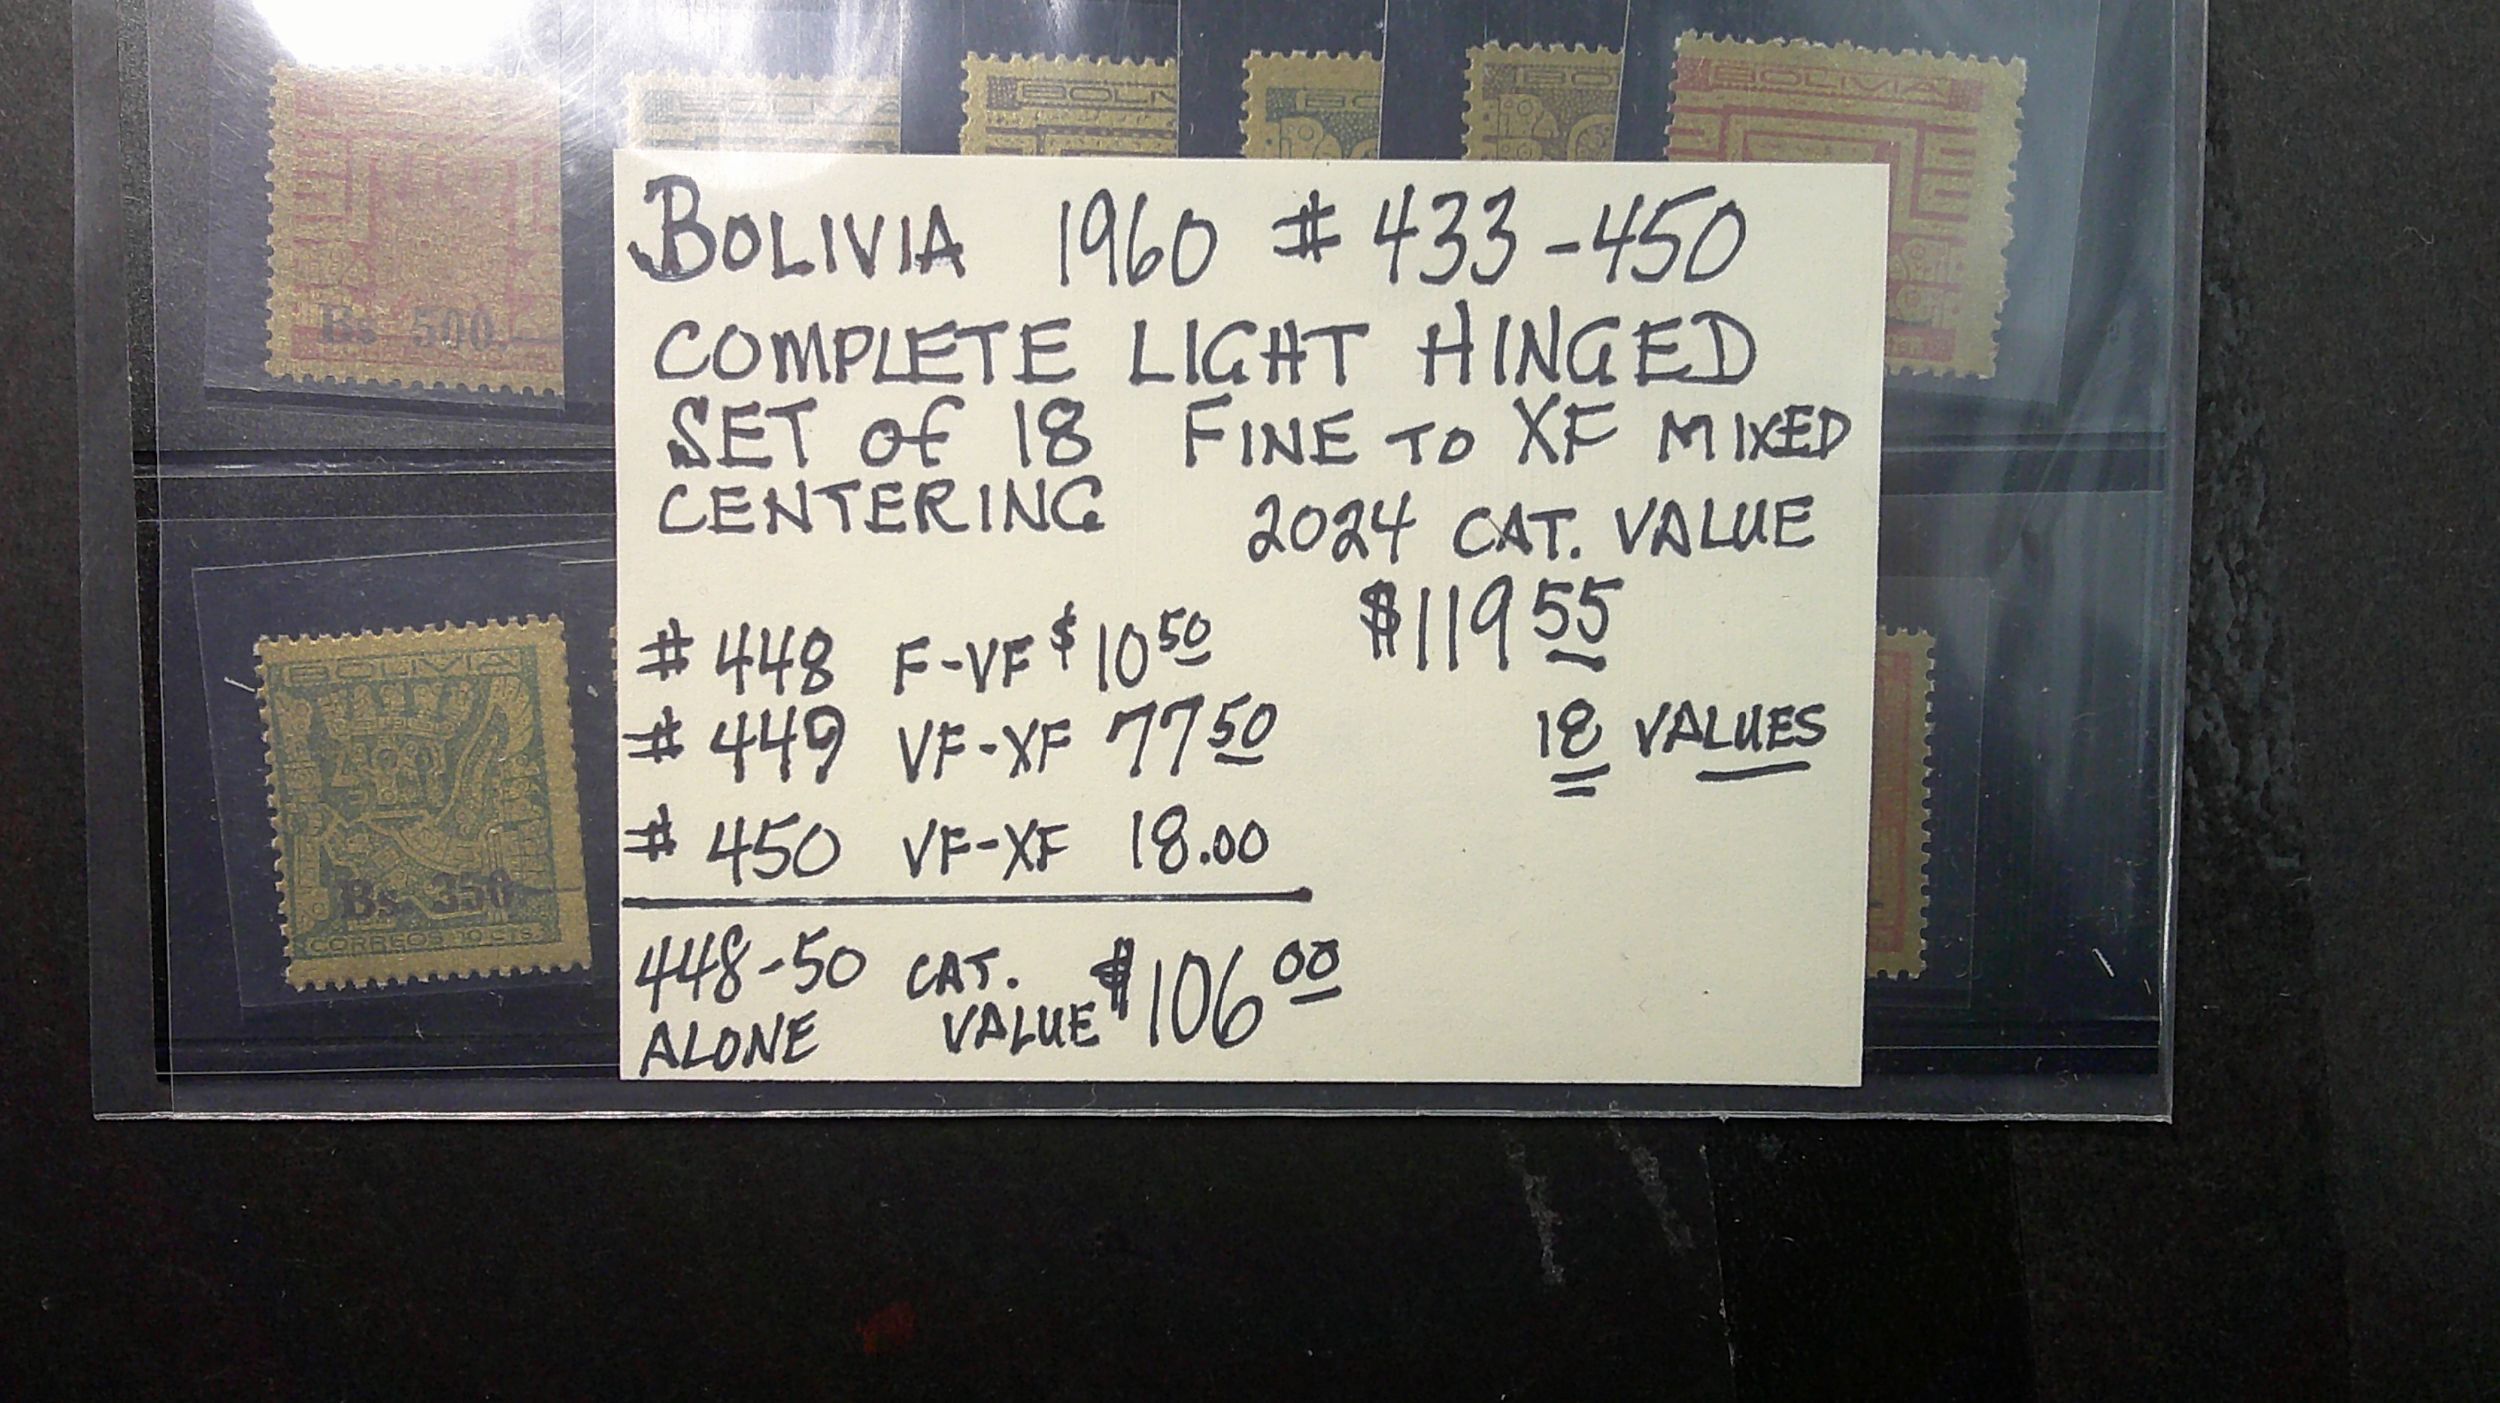 BOLIVIA
BOLIVIA
Bs 500.-
BOLIVIA 1960 # 433-450
COMPLETE LIGHT HINGED
SET of 18 FINE TO XF MIXED
CENTERING 2024 CAT. VALUE
$119 55
# 448 F-VF $10 50
# 449 VF-XF 77 50
18 VALUES
# 450 VF-XF 18.00
448-50 CAT. $106 00
ALONE VALUE
BOLIVIA
Bs. 350.-
CORREOS 10 cts.